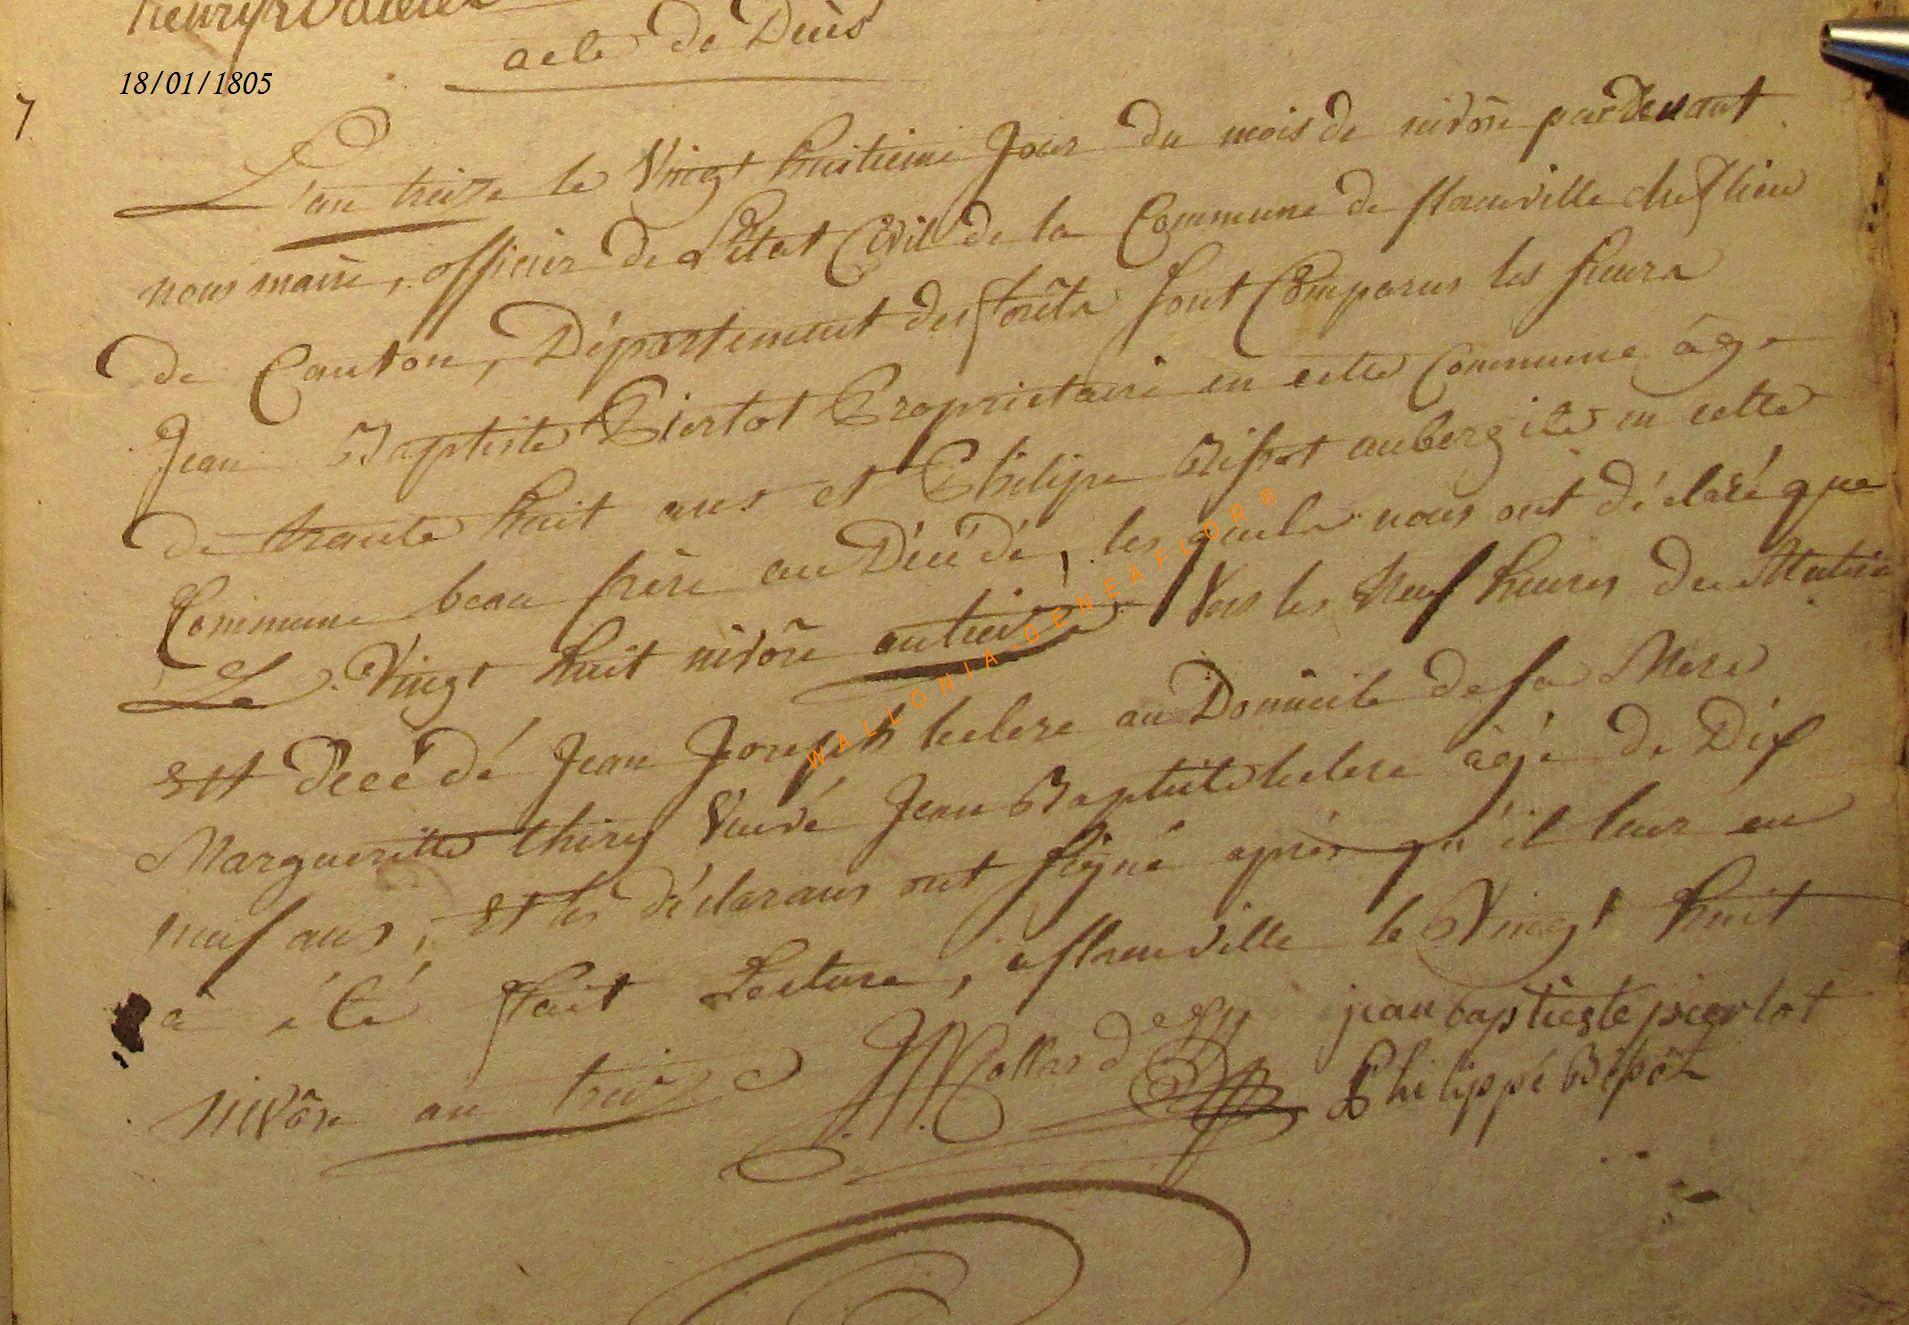 acte de Decès
18/01/1805
7
L'an treize le Vingt huitieme Jour du mois de nivôse pardevant
nous maire, officier de L'Etat Civil de la Commune de florenville chef lieu
de Canton, Département des forêts sont Comparus les sieurs
Jean Baptiste Pierlot Proprietaire en cette Commune âge
de trante huit ans et Philipe aubergite en cette
Commune beau frère au Décédé, les quels nous ont déclaré que
Le Vingt huit nivôse an treize Vers les Neuf heures du Matin
Est décédé Jean Joseph au Domicile de sa Mere
Margueritte thiry Veuve Jean Baptiste âgé de Dix
neuf ans, Et les déclarans ont signé après qu'il leur en
a été fait Lecture, a florenville le Vingt huit
nivôse an treize
jean baptieste pierlot
Philippé
WALLONIA-GENEAFLOR®